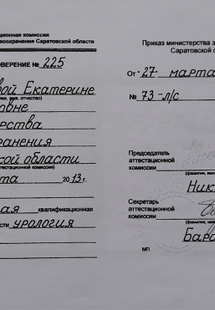 ационная комиссия
воохранения Саратовской области
ВЕРЕНИЕ № 225
вой Екатерине
(фамилия, имя, отчество)
вне
рства
ранения
ской области
аттестационной комиссии)
та 2013 г.
ая квалификационная
сти урология
Приказ министерства з
Саратовской о
От "27" марта
№ 73-л/с
Председатель
аттестационной
комиссии
Ник
Секретарь
аттестационной
комиссии
Бара
МП